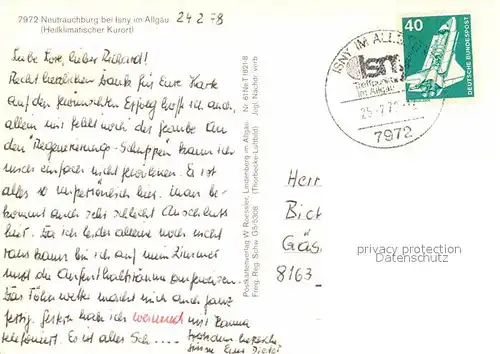 7972 Neutrauchburg bei Isny im Allgäu 24.2.78
(Heilklimatischer Kurort)
Liebe Rose, lieber Richard!
Recht herzlichen Dank für Eure Karte
auf den gewünschten Erfolg hoffe ich auch,
allein mir fehlt noch der Glaube. An
den "Regenerierung-Schuppen" kann ich
mich einfach nicht gewöhnen. Es ist
alles so unpersönlich hier. Man be-
kommt auch sehr schlecht Anschluss
hier. Da ich leider alleine noch nicht
raus kann bin ich auf mein Zimmer
und die Aufenthaltsräume angewiesen.
Das Föhnwetter macht mich auch ganz
fertig. Gestern habe ich weinend mit
telefoniert. Es ist alles Sch.....
Trotzdem herzliche
Grüsse Eure
Postkartenverlag W Roessler, Lindenberg im Allgäu Nr 61 Ne T 1821-8
Freig. Reg. Schw. G5/5308 (Thorbecke-Luftbild) Jegl. Nachdr. verb.
ISNY IM ALLG
isny
Treffpunkt
im Allgäu
7972
40
DEUTSCHE BUNDESPOST
Herr
Gäs
8163
privates Angebot
Datenschutz